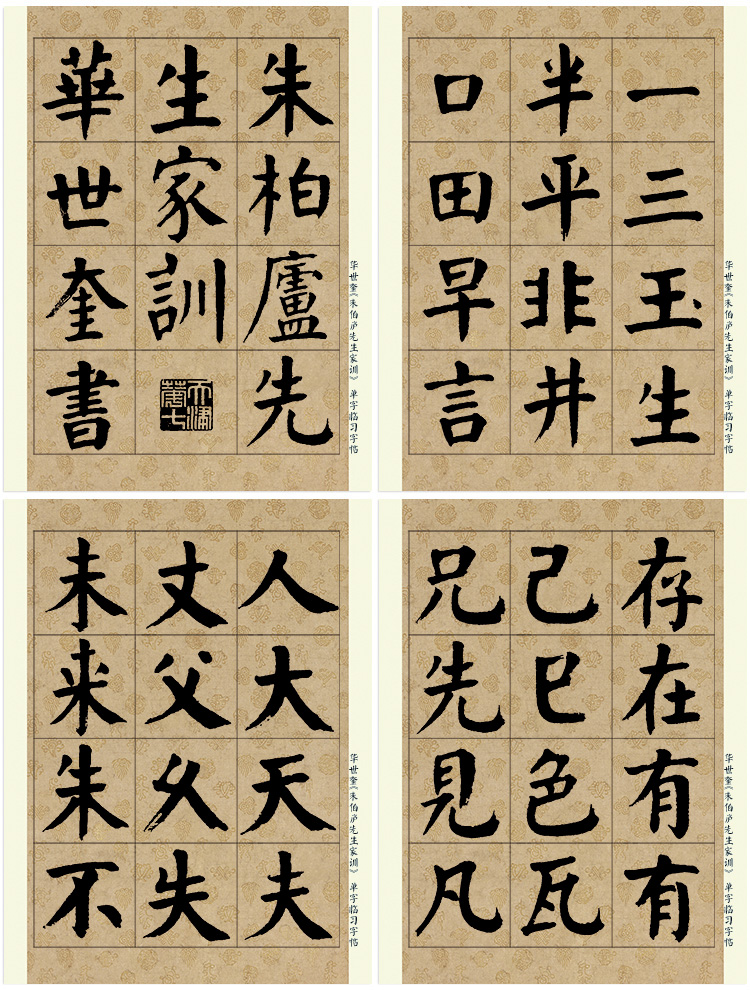 朱柏廬先
生家訓
華世奎書
华世奎《朱伯庐先生家训》 单字临习字帖
一三玉生
半平非井
口田早言
华世奎《朱伯庐先生家训》 单字临习字帖
人大天夫
丈父久失
未来朱不
华世奎《朱伯庐先生家训》 单字临习字帖
存在有有
己巳色瓦
兄先見凡
华世奎《朱伯庐先生家训》 单字临习字帖